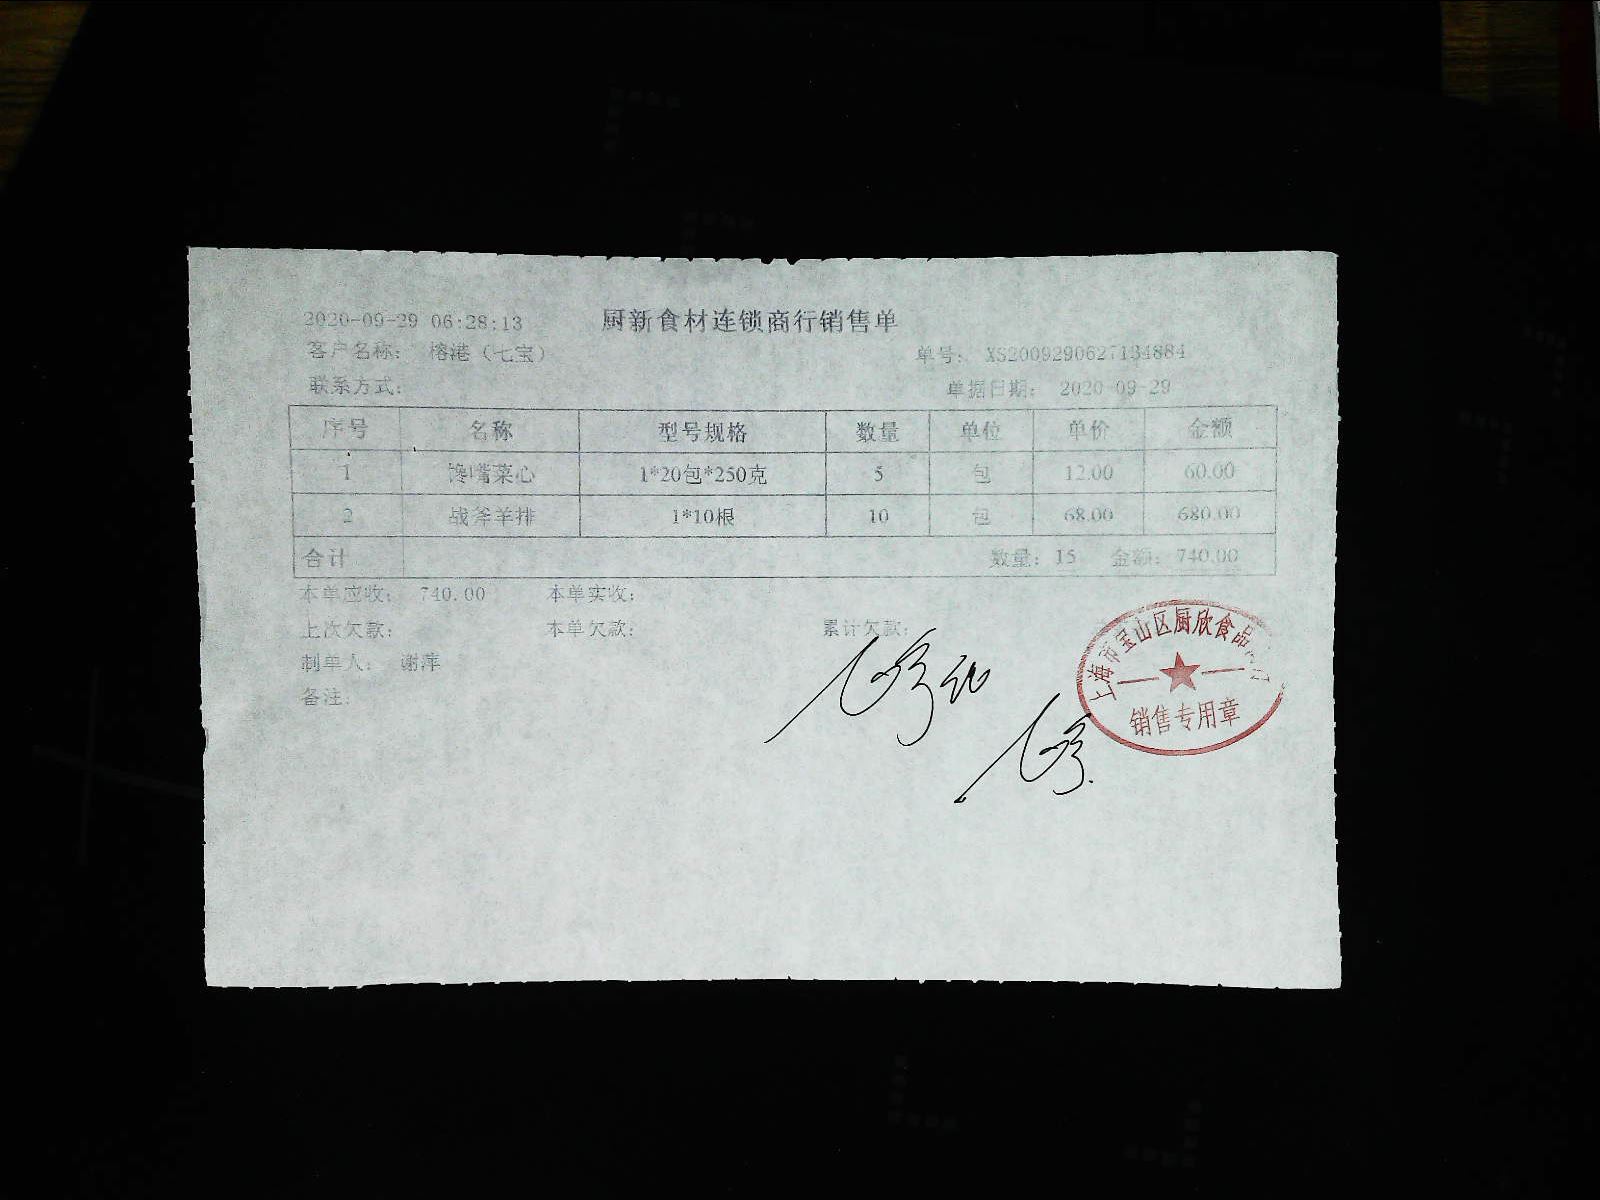 2020-09-29 06:28:13 厨新食材连锁商行销售单
客户名称： 榕港（七宝） 单号： XS2009290627134884
联系方式： 单据日期： 2020-09-29
序号 名称 型号规格 数量 单位 单价 金额
1 馋嘴菜心 1*20包*250克 5 包 12.00 60.00
2 战斧羊排 1*10根 10 包 68.00 680.00
合计 数量：15 金额：740.00
本单应收： 740.00 本单实收：
上次欠款： 本单欠款： 累计欠款：
制单人： 谢萍
备注：
上海市宝山区厨欣食品
销售专用章